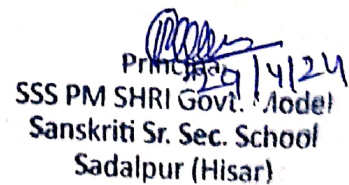 Principal
29/4/24
SSS PM SHRI Govt. Model
Sanskriti Sr. Sec. School
Sadalpur (Hisar)